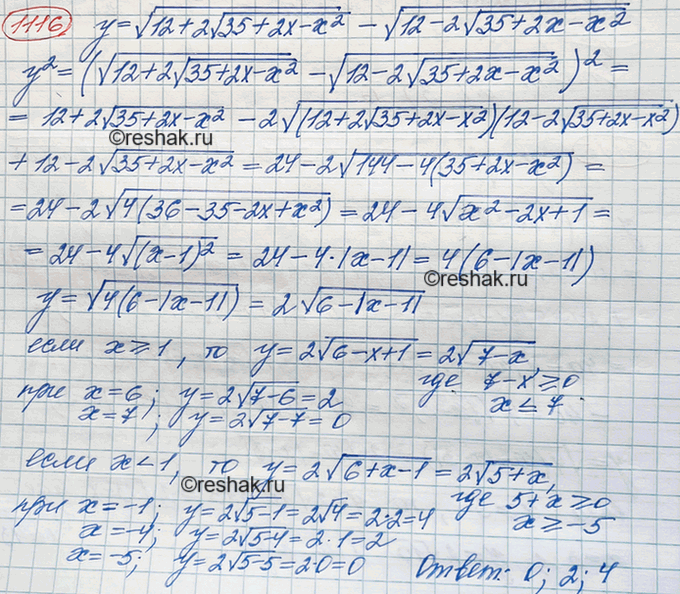 1116 y=√(12+2√(35+2x-x²)) - √(12-2√(35+2x-x²))
y²=(√(12+2√(35+2x-x²)) - √(12-2√(35+2x-x²)))²=
= 12+2√(35+2x-x²) - 2√((12+2√(35+2x-x²))(12-2√(35+2x-x²)))
©reshak.ru
+12-2√(35+2x-x²) = 24-2√(144-4(35+2x-x²)) =
=24-2√(4(36-35-2x+x²)) = 24-4√(x²-2x+1) =
= 24-4√((x-1)²) = 24-4·|x-1| = 4(6-|x-1|)
©reshak.ru
y=√(4(6-|x-1|)) = 2√(6-|x-1|)
если x≥1, то y=2√(6-x+1)=2√(7-x)
где 7-x≥0
при x=6; y=2√(7-6)=2
x≤7.
x=7; y=2√(7-7)=0
если x<1, то y=2√(6+x-1)=2√(5+x),
©reshak.ru
где 5+x≥0
при x=-1; y=2√(5-1)=2√4=2·2=4
x≥-5
x=-4; y=2√(5-4)=2·1=2
x=-5; y=2√(5-5)=2·0=0
Ответ: 0; 2; 4